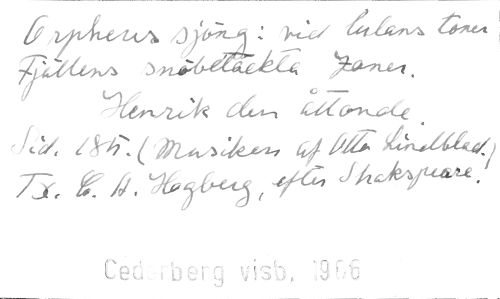 Orpheus sjöng: vid lutans toner
Fjällens snöbetäckta zoner.
Henrik den åttonde.
Sid. 185. (Musiken af Otto Lindblad.)
Tx. C. A. Hagberg, efter Shakspeare.
Cederberg visb. 1966